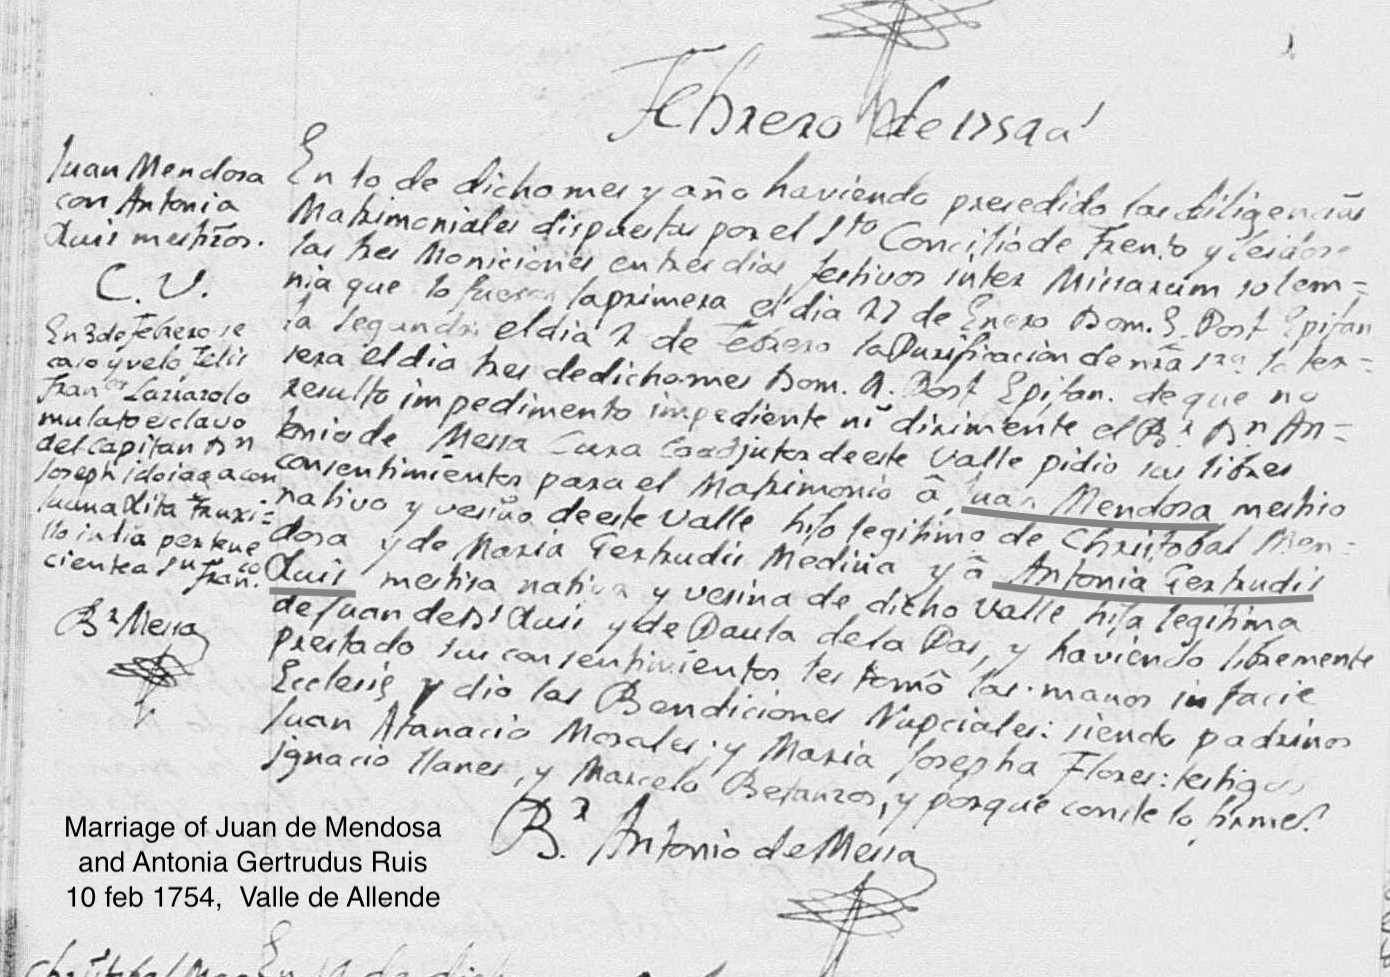 Febrero de 1754 a.s
Juan Mendosa
con Antonia
Ruis mestizos.
C. V.
En 3 de Febrero se
caso y velo Felis
Fran.co Lazarolo
mulato esclavo
del Capitan Dn
Joseph idoiaga con
Juana Rita Truxi=
llo india pertene
ciente a Sn
Fran.co
Br Messa
En 10 de dicho mes y año haviendo presedido las diligencias
Matrimoniales dispuestas por el Sto Concilio de Trento y leidose
las tres Moniciones en tres dias festivos inter Missarum solem=
nia que lo fueron la primera el dia 27 de Enero Dom. 3. Post Epifan
la segunda el dia 2 de Febrero la Purificacion de nra Sra la ter=
sera el dia tres de dicho mes Dom. 4. Post Epifan. de que no
resulto impedimento impediente ni dirimente el Br Dn An=
tonio de Messa Cura Coadjutor de este Valle pidio sus libres
consentimientos para el Matrimonio â Juan Mendosa mestizo
nativo y vesino de este Valle hijo legitimo de Christobal Men=
dosa y de Maria Gertrudis Medina y â Antonia Gertrudis
Ruis mestisa nativa y vesina de dicho Valle hija legitima
de Juan de Ds Ruis y de Paula de la Pas, y haviendo libremente
prestado sus consentimientos les tomô las manos in facie
Eclesię y dio las Bendiciones Nupciales: siendo padrinos
Juan Atanacio Morales: y Maria Josepha Flores: testigos
Ignacio llanes, y Marcelo Betanzos, y porque conste lo firme.
Br. Antonio de Messa
Marriage of Juan de Mendosa
and Antonia Gertrudus Ruis
10 feb 1754, Valle de Allende